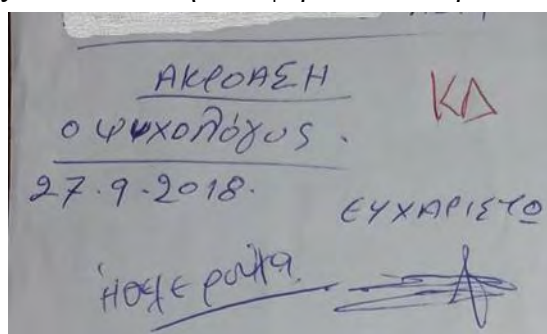 ΑΚΡΟΑΣΗ
ΚΔ
Ο ΨΥΧΟΛΌΓΟΣ.
27.9.2018.
ΕΥΧΑΡΙΣΤΩ